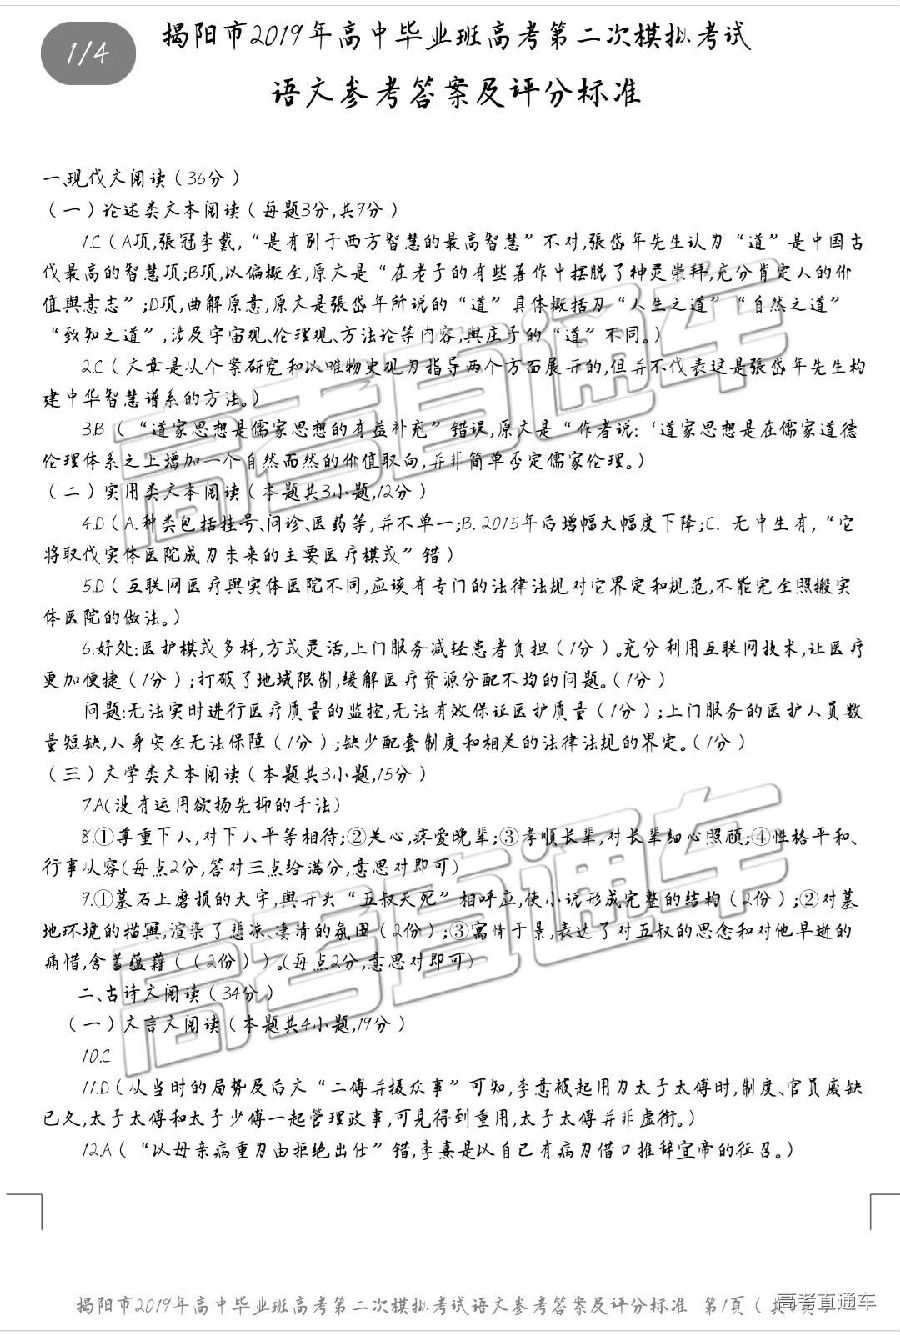 1/4
揭阳市2019年高中毕业班高考第二次模拟考试
语文参考答案及评分标准
一、现代文阅读（36分）
（一）论述类文本阅读（每题3分,共9分）
1.C（A项,張冠李戴,“是有别于西方智慧的最高智慧”不对,張岱年先生认为“道”是中国古
代最高的智慧项;B项,以偏概全,原文是“在老子的有些著作中摆脱了神灵崇拜,充分肯定人的价
值與意志”;D项,曲解原意,原文是張岱年所说的“道”具体概括为“人生之道”“自然之道”
“致知之道”,涉及宇宙观、伦理观、方法论等内容,與庄子的“道”不同。）
2.C（文章是从个案研究和以唯物史观为指导两个方面展开的,但并不代表这是張岱年先生构
建中华智慧谱系的方法。）
3.B（“道家思想是儒家思想的有益补充”错误,原文是“作者说:‘道家思想是在儒家道德
伦理体系之上增加一个自然而然的价值取向,并非简单否定儒家伦理。）
（二）实用类文本阅读（本题共3小题,12分）
4.D（A.种类包括挂号、问诊、医药等,并不单一;B.2015年后增幅大幅度下降;C.无中生有,“它
将取代实体医院成为未来的主要医疗模式”错）
5.D（互联网医疗與实体医院不同,应该有专门的法律法规对它界定和规范,不能完全照搬实
体医院的做法。）
6.好处:医护模式多样,方式灵活,上门服务减轻患者负担（1分）。充分利用互联网技术,让医疗
更加便捷（1分）;打破了地域限制,缓解医疗资源分配不均的问题。（1分）
问题:无法实时进行医疗质量的监控,无法有效保证医护质量（1分）;上门服务的医护人员数
量短缺,人身安全无法保障（1分）;缺少配套制度和相关的法律法规的界定。（1分）
（三）文学类文本阅读（本题共3小题,15分）
7.A(没有运用欲扬先抑的手法)
8.①尊重下人,对下人平等相待;②关心,疼爱晚辈;③孝顺长辈,对长辈细心照顾;④性格平和、
行事从容(每点2分,答对三点给满分,意思对即可)
9.①墓石上磨损的大字,與开头“五叔夭死”相呼应,使小说形成完整的结构（2份）;②对墓
地环境的描與,渲染了悲凉、凄清的氛围（2份）;③寓情于景,表达了对五叔的思念和对他早逝的
痛惜,含蓄蕴藉（（2份））。(每点2分,意思对即可)
二、古诗文阅读（34分）
（一）文言文阅读（本题共4小题,19分）
10.C
11.D（从当时的局势及后文“二傅并摄众事”可知,李憙被起用为太子太傅时,制度、官員废缺
已久,太子太傅和太子少傅一起管理政事,可見得到重用,太子太傅并非虚衔。）
12.A（“以母亲病重为由拒绝出仕”错,李憙是以自己有病为借口推辞宣帝的征召。）
揭阳市2019年高中毕业班高考第二次模拟考试语文参考答案及评分标准 第1頁（共
高考直通车
高考直通车
高考直通车